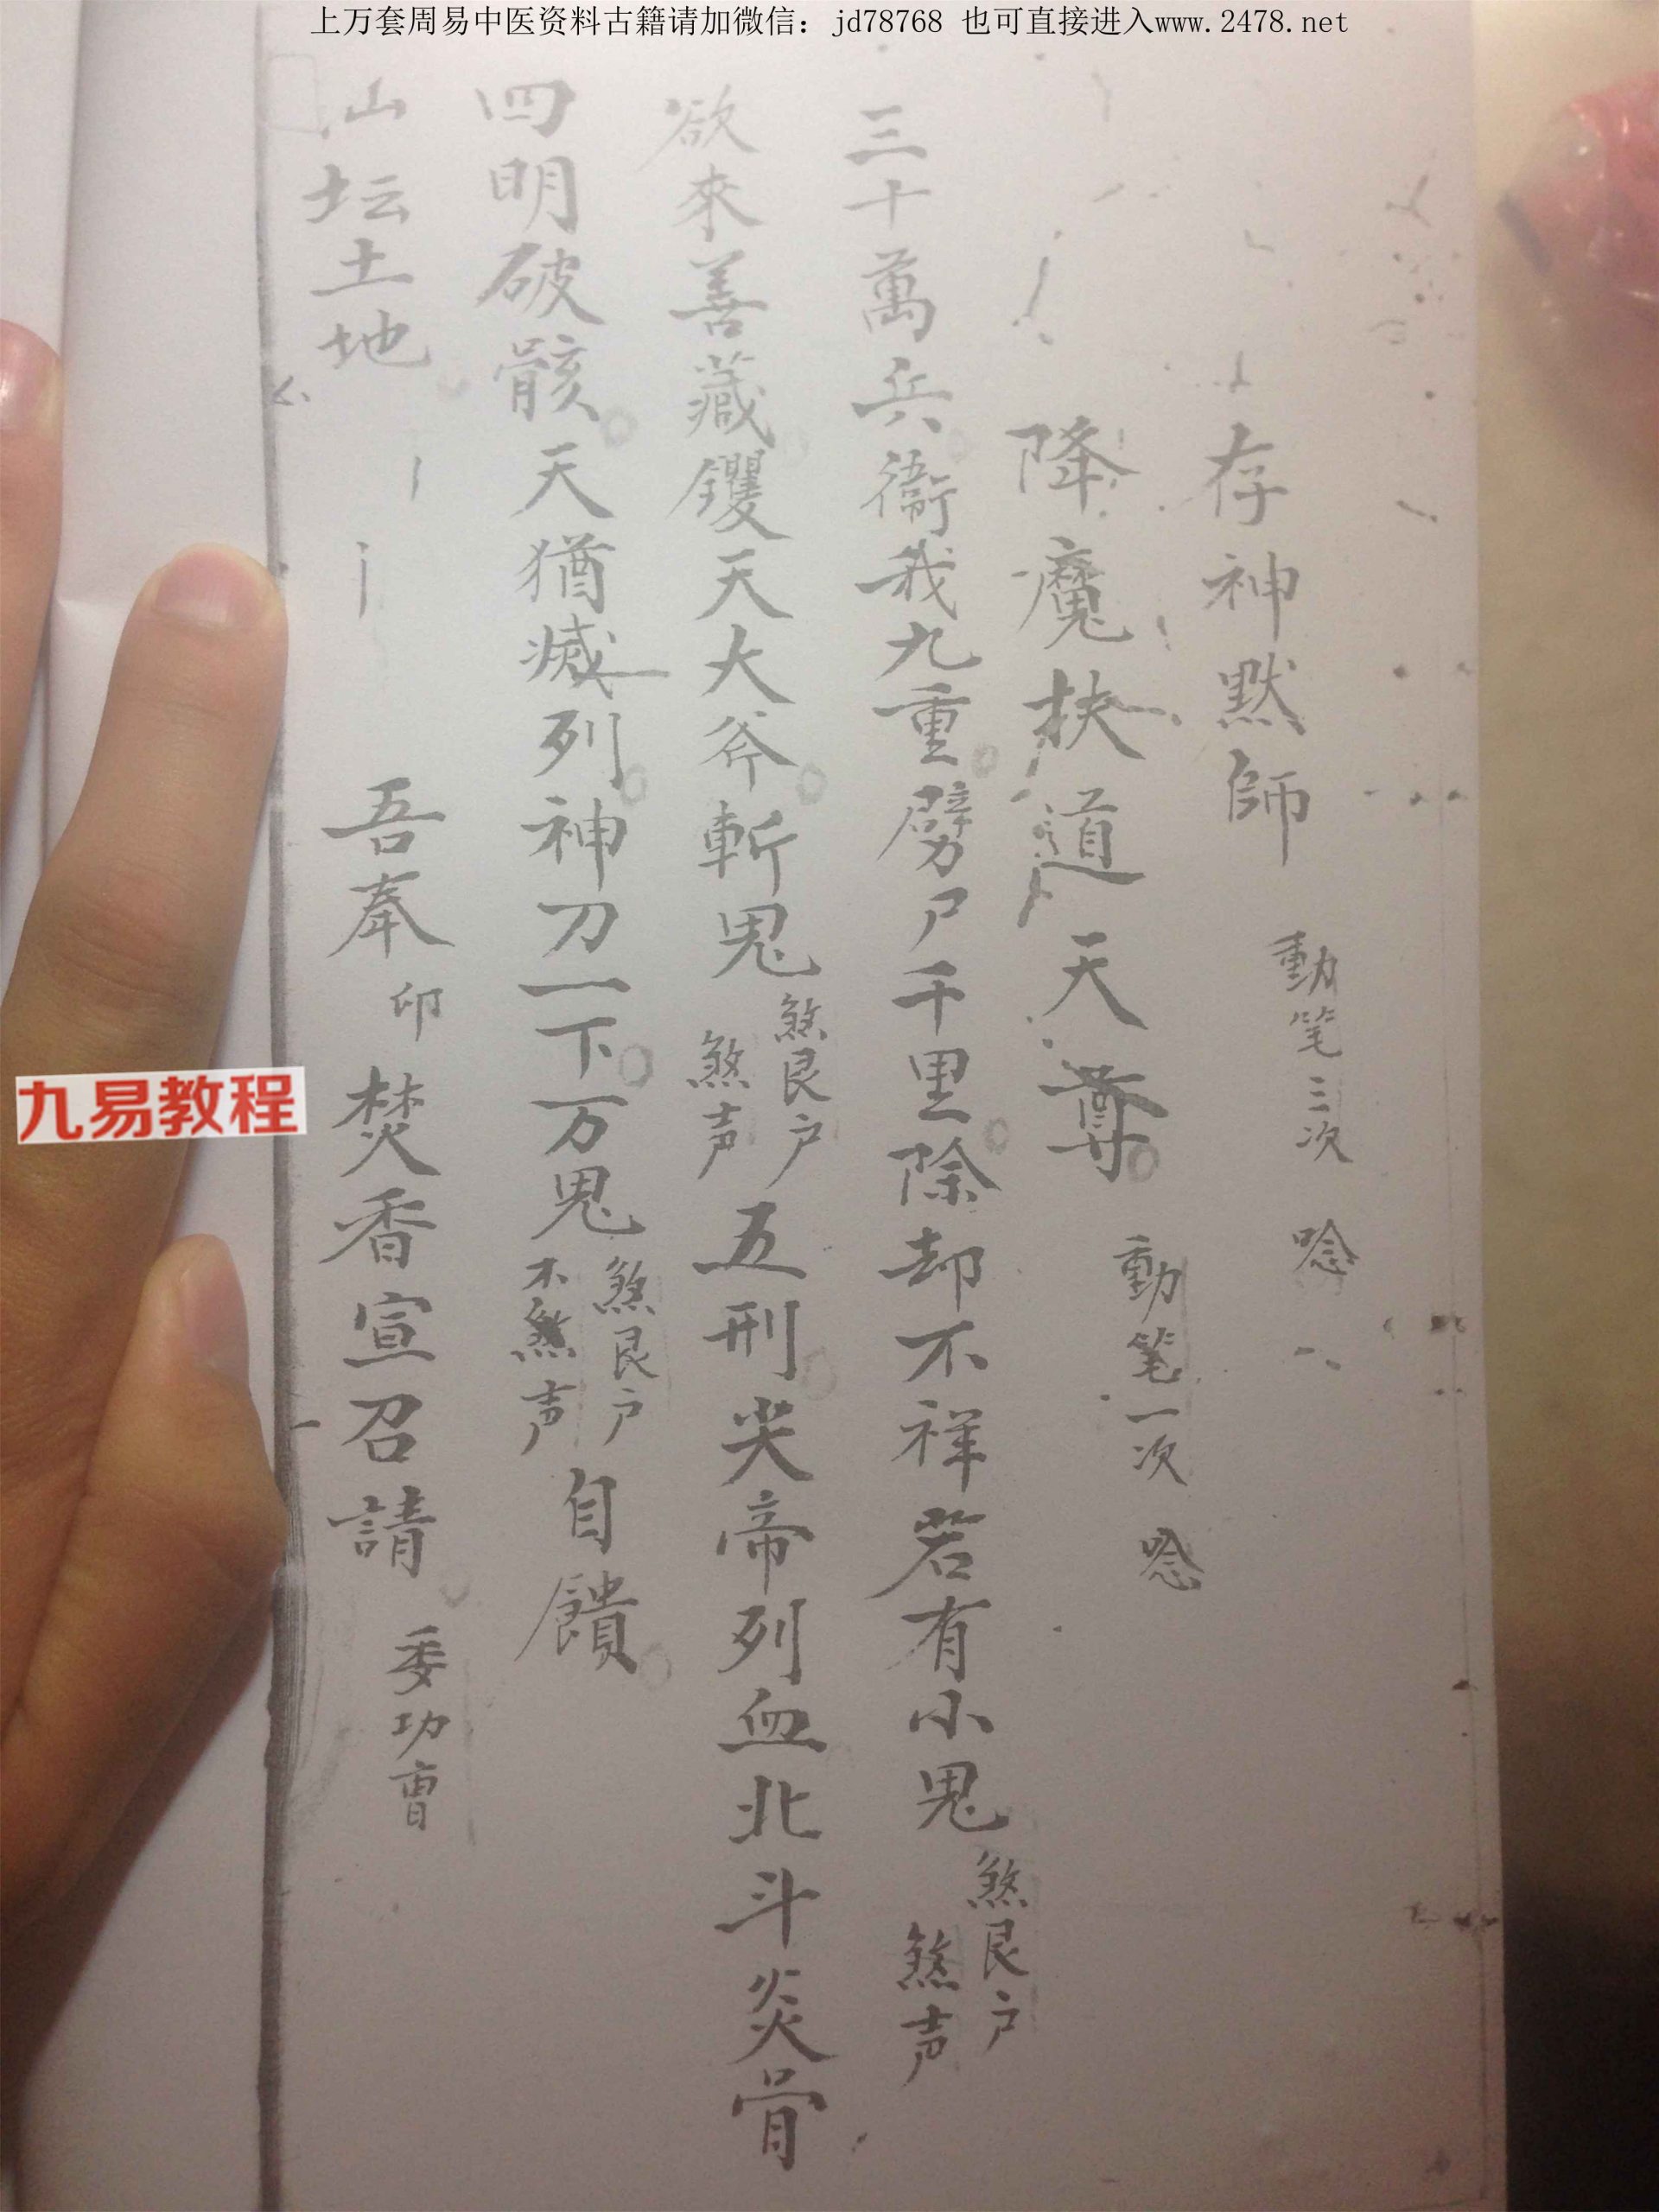 上万套周易中医资料古籍请加微信：jd78768 也可直接进入www.2478.net
存神默師 動笔三次 唸
降魔扶道天尊 動笔一次 唸
三十萬兵衛我九重劈尸千里除却不祥若有小鬼 煞艮户 煞声
欲來善藏钁天大斧斬鬼 煞艮户 煞声 五刑尖帝列血北斗炎骨
四明破骸天猶滅列神刀一下万鬼 煞艮户 不煞声 自饋
山坛土地 吾奉 印 焚香宣召請 委功曹
九易教程